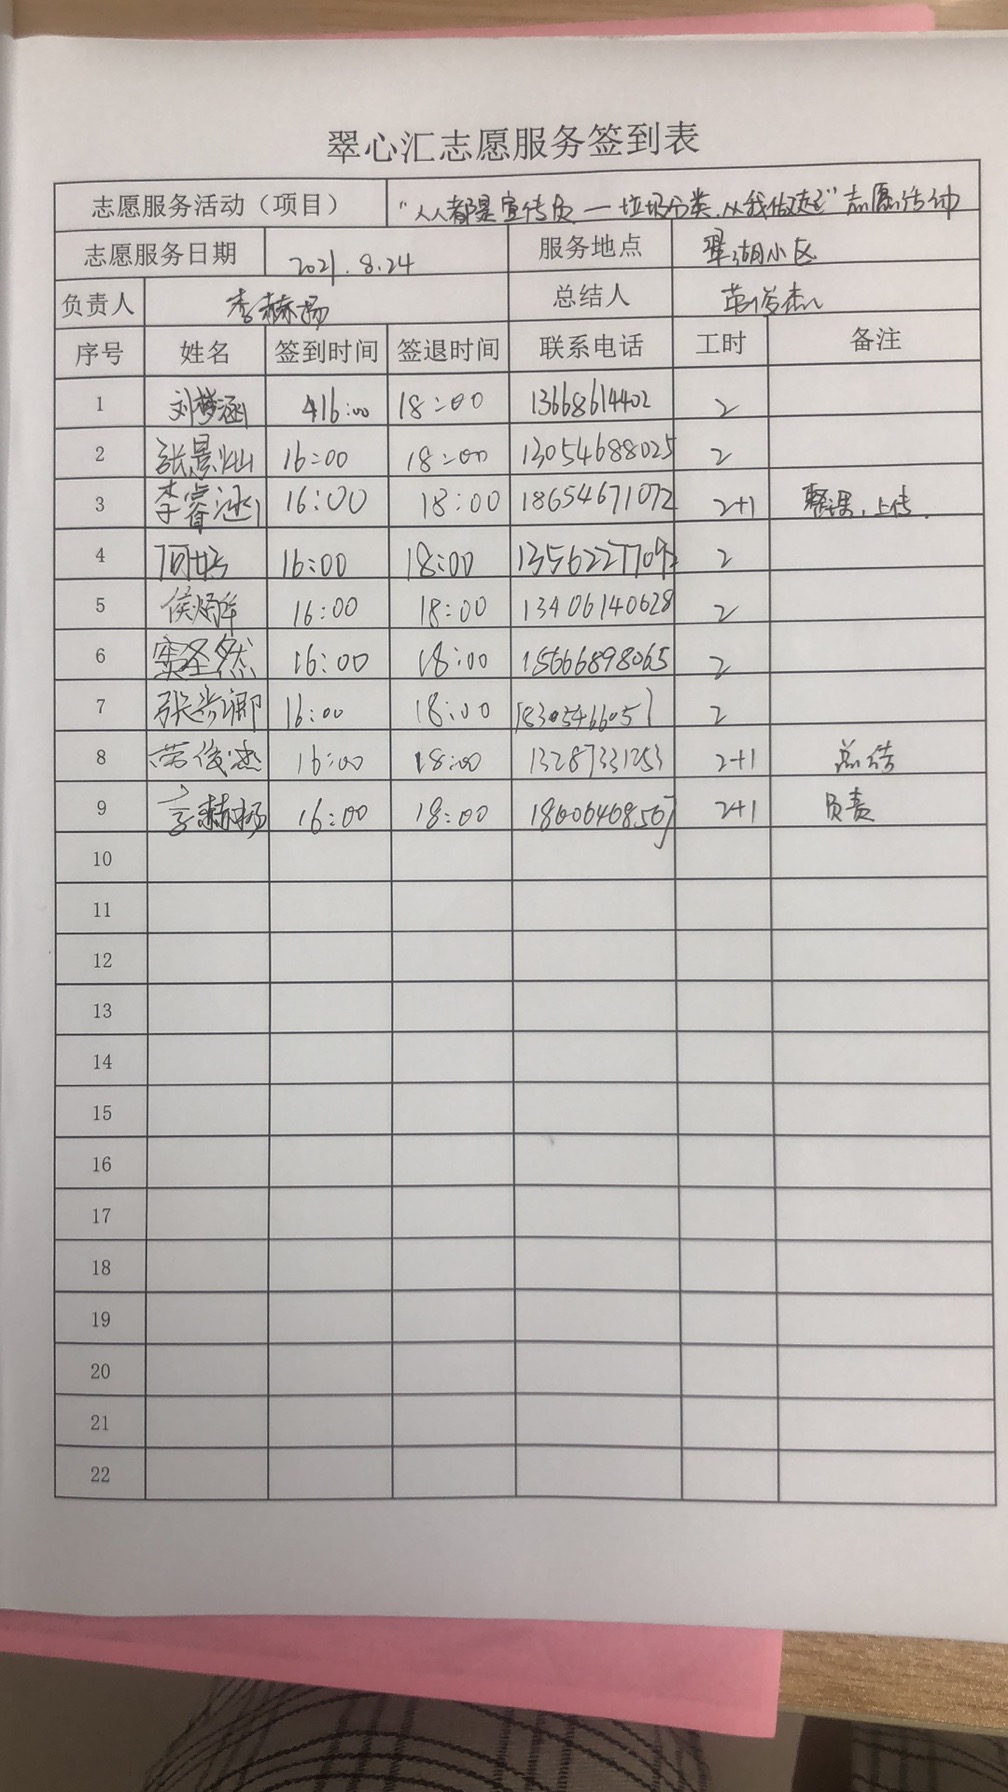 翠心汇志愿服务签到表
志愿服务活动（项目） “人人都是宣传员—垃圾分类，从我做起”志愿活动
志愿服务日期 2021.8.24 服务地点 翠湖小区
负责人 李赫扬 总结人 苗俊杰
序号 姓名 签到时间 签退时间 联系电话 工时 备注
1 刘梦涵 16:00 18:00 13668614402 2
2 张景灿 16:00 18:00 13054688025 2
3 李睿涵 16:00 18:00 18654671072 2+1 上传
4 16:00 18:00 2
5 16:00 18:00 13406140628 2
6 窦圣然 16:00 18:00 15666898065 2
7 16:00 18:00 18305466051 2
8 16:00 18:00 13287331253 2+1 总结
9 李赫扬 16:00 18:00 2+1 负责
10
11
12
13
14
15
16
17
18
19
20
21
22